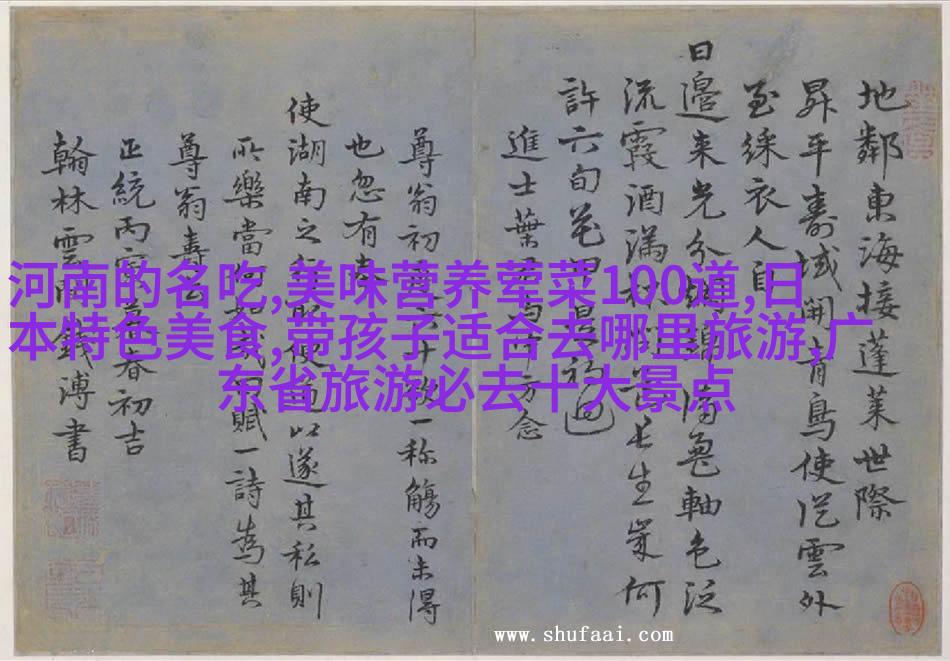 河南的名吃,美味营养荤菜100道,日
本特色美食,带孩子适合去哪里旅游,广
东省旅游必去十大景点
地鄰東海接蓬萊世際
昇平壽域開青鳥使從雲外
至綵衣人自
日邊來光分 軸色泛
流霞酒滿 長生歲何
許六旬花甲是初迴
進士葉 方念
尊翁初 六十 一称觴而未得
也忽有奉
使湖南之 便 以遂其私則
所樂當何如 賦一詩為其
尊翁壽云
正統丙 春初吉
翰林雲 錢溥書
www.shufaai.com